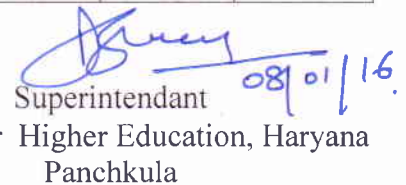 08/01/16
Superintendant
r Higher Education, Haryana
Panchkula